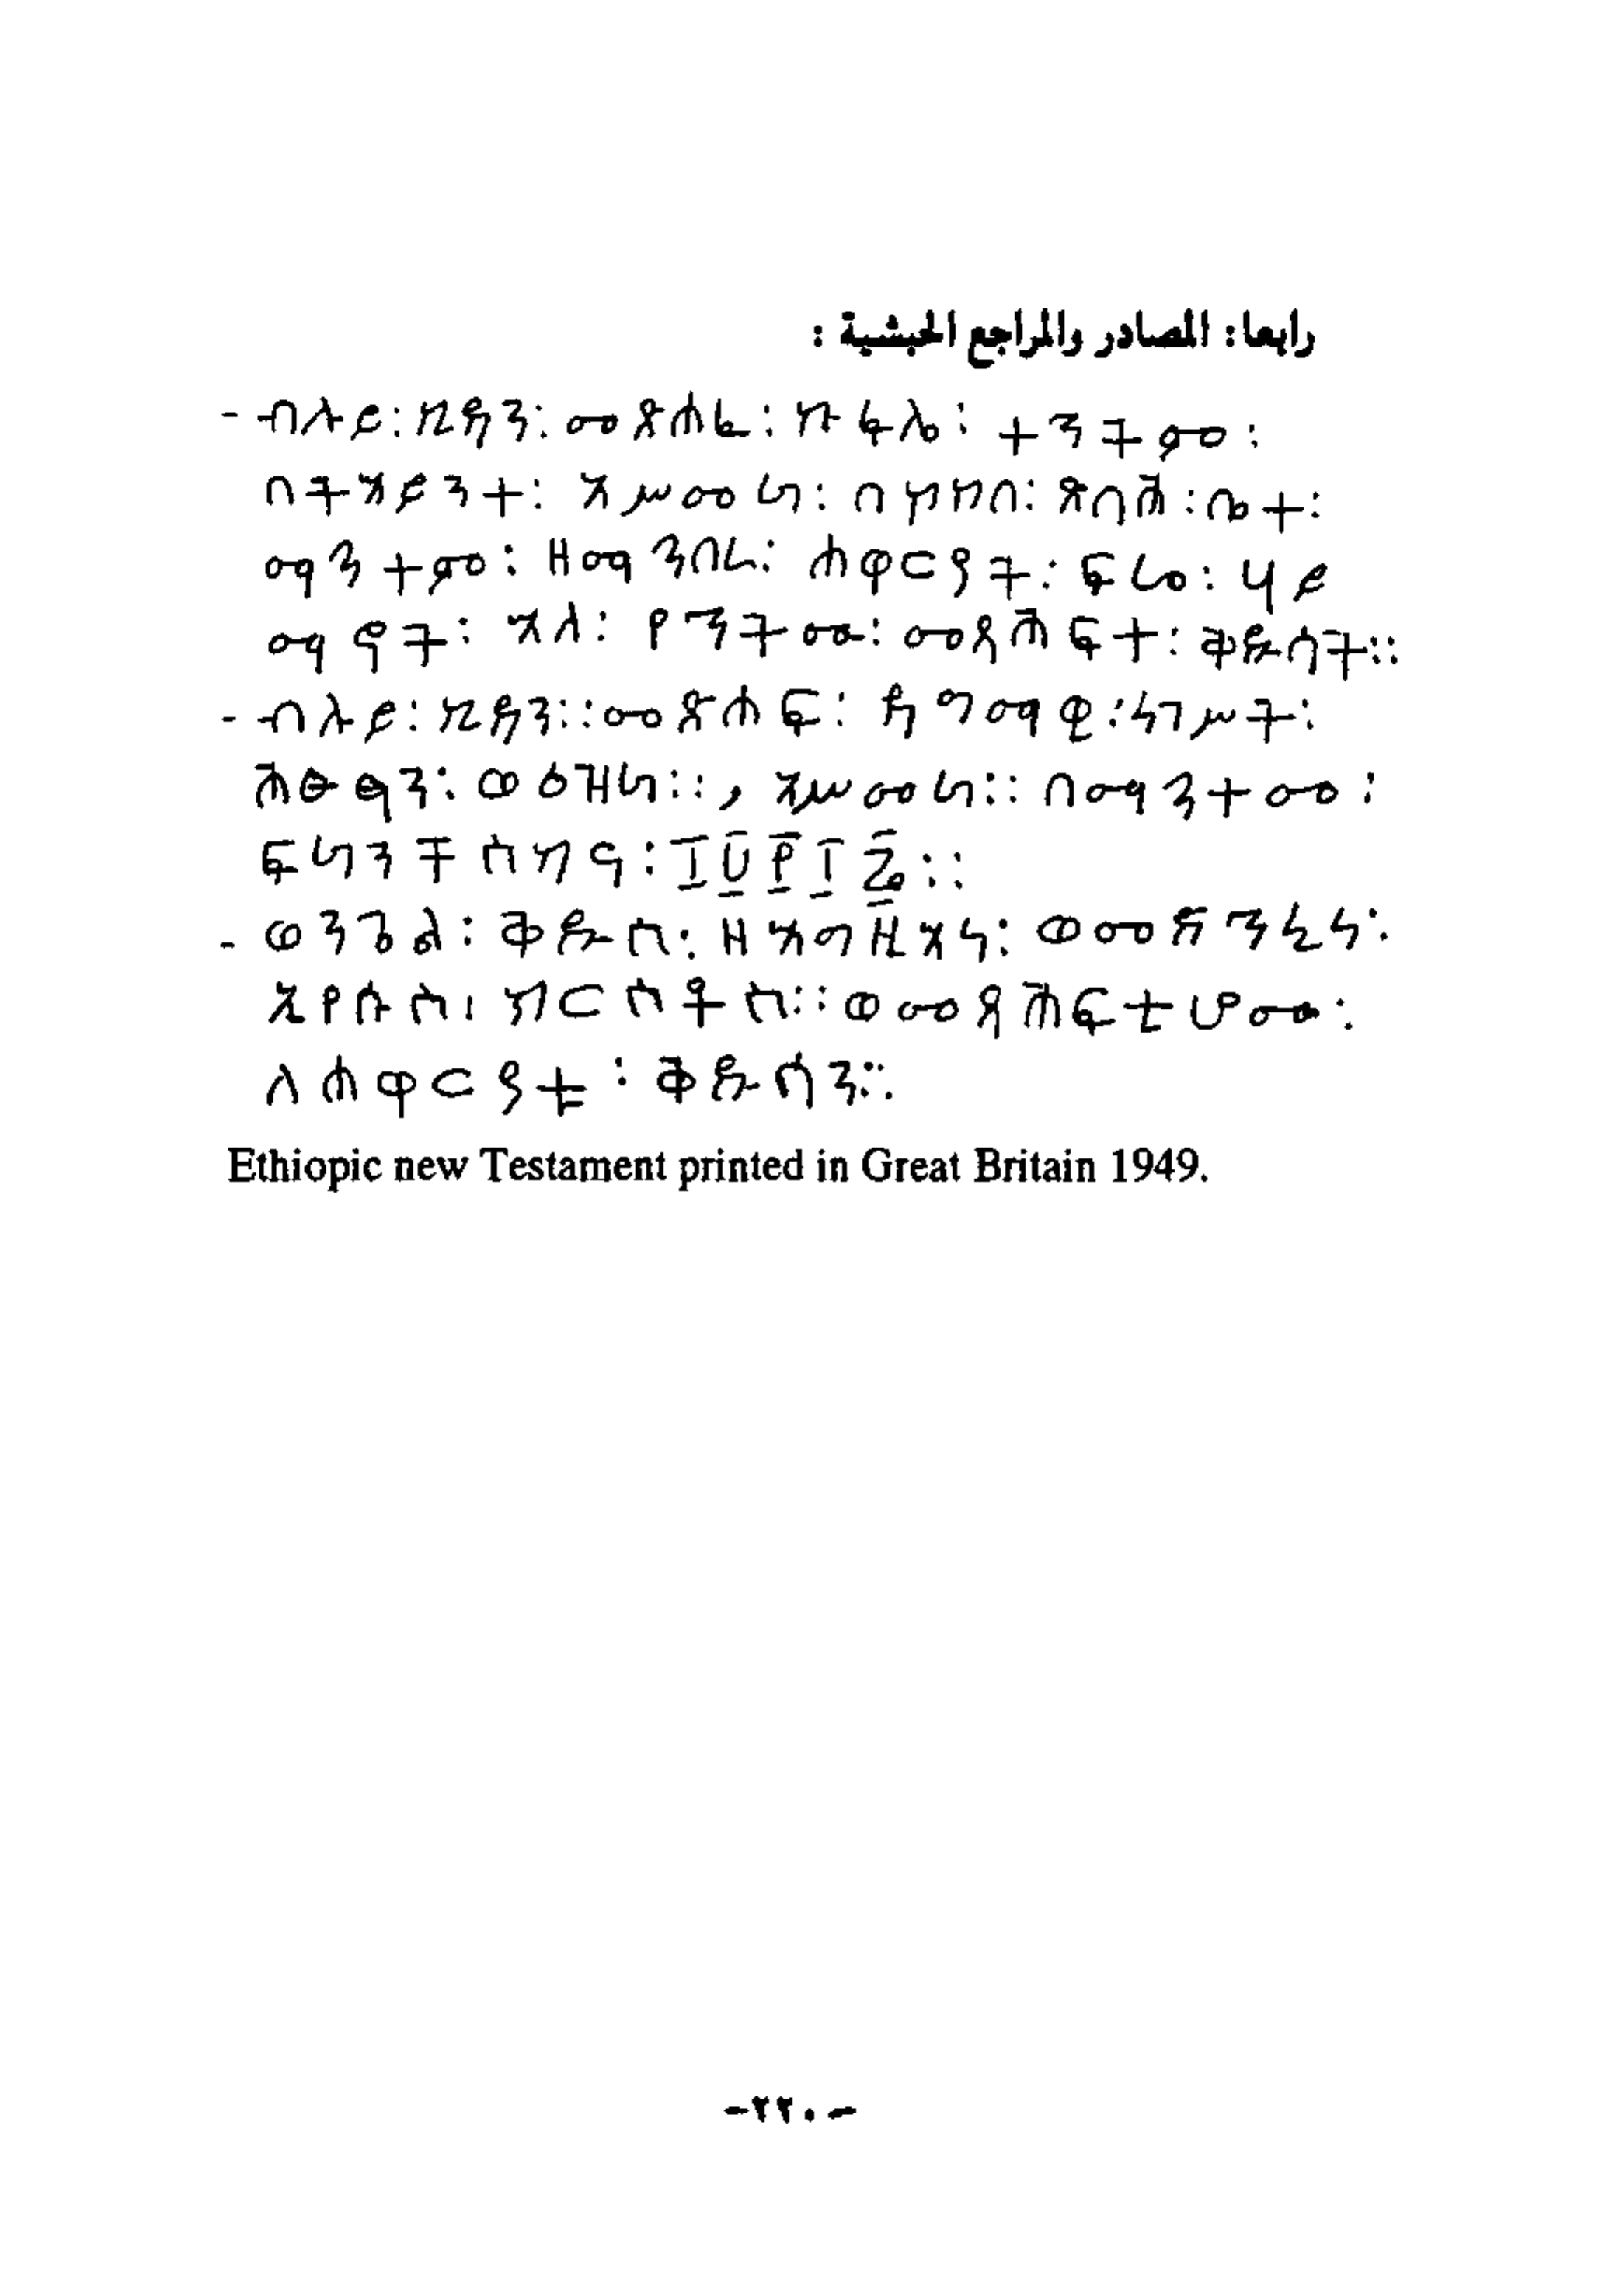 رابعا: المصادر والمراجع الحبشية :
- ብሉይ፡ ኪዳን፡ መጽሐፈ፡ ኩፋሌ፡ ተንተሞ፡
በትኧይንተ፡ አሥመራ፡ በ ጽባሕ፡ ቤተ፡
ማኅተሞ፡ ዘማኅበረ፡ ሐዋርያት፡ ፍሬ፡ ሃይ
ማኖት፡ እለ፡ የኅትሙ፡ መጻሕፍተ፡ ቅዱሳት።
- ብሉይ፡ ኪዳን።መጽሐፍ፡ ዳግማዊ፡ነገሥት፡
ሕፅፃን፡ ወዕዝራ።, አሥመራ። በማኅተመ፡
ፍራንቸስካና፡፲፱፻፲፯።
- ወንጌል፡ ቅዱስ፡ ዘእግዚእነ፡ ወመድኀኒነ፡
ኢየሱስ፡ ክርስቶስ።ወመጻሕፍቲሆሙ፡
ለሐዋርያቲ፡ ቅዱሳን።
Ethiopic new Testament printed in Great Britain 1949.
-٢٢٠-